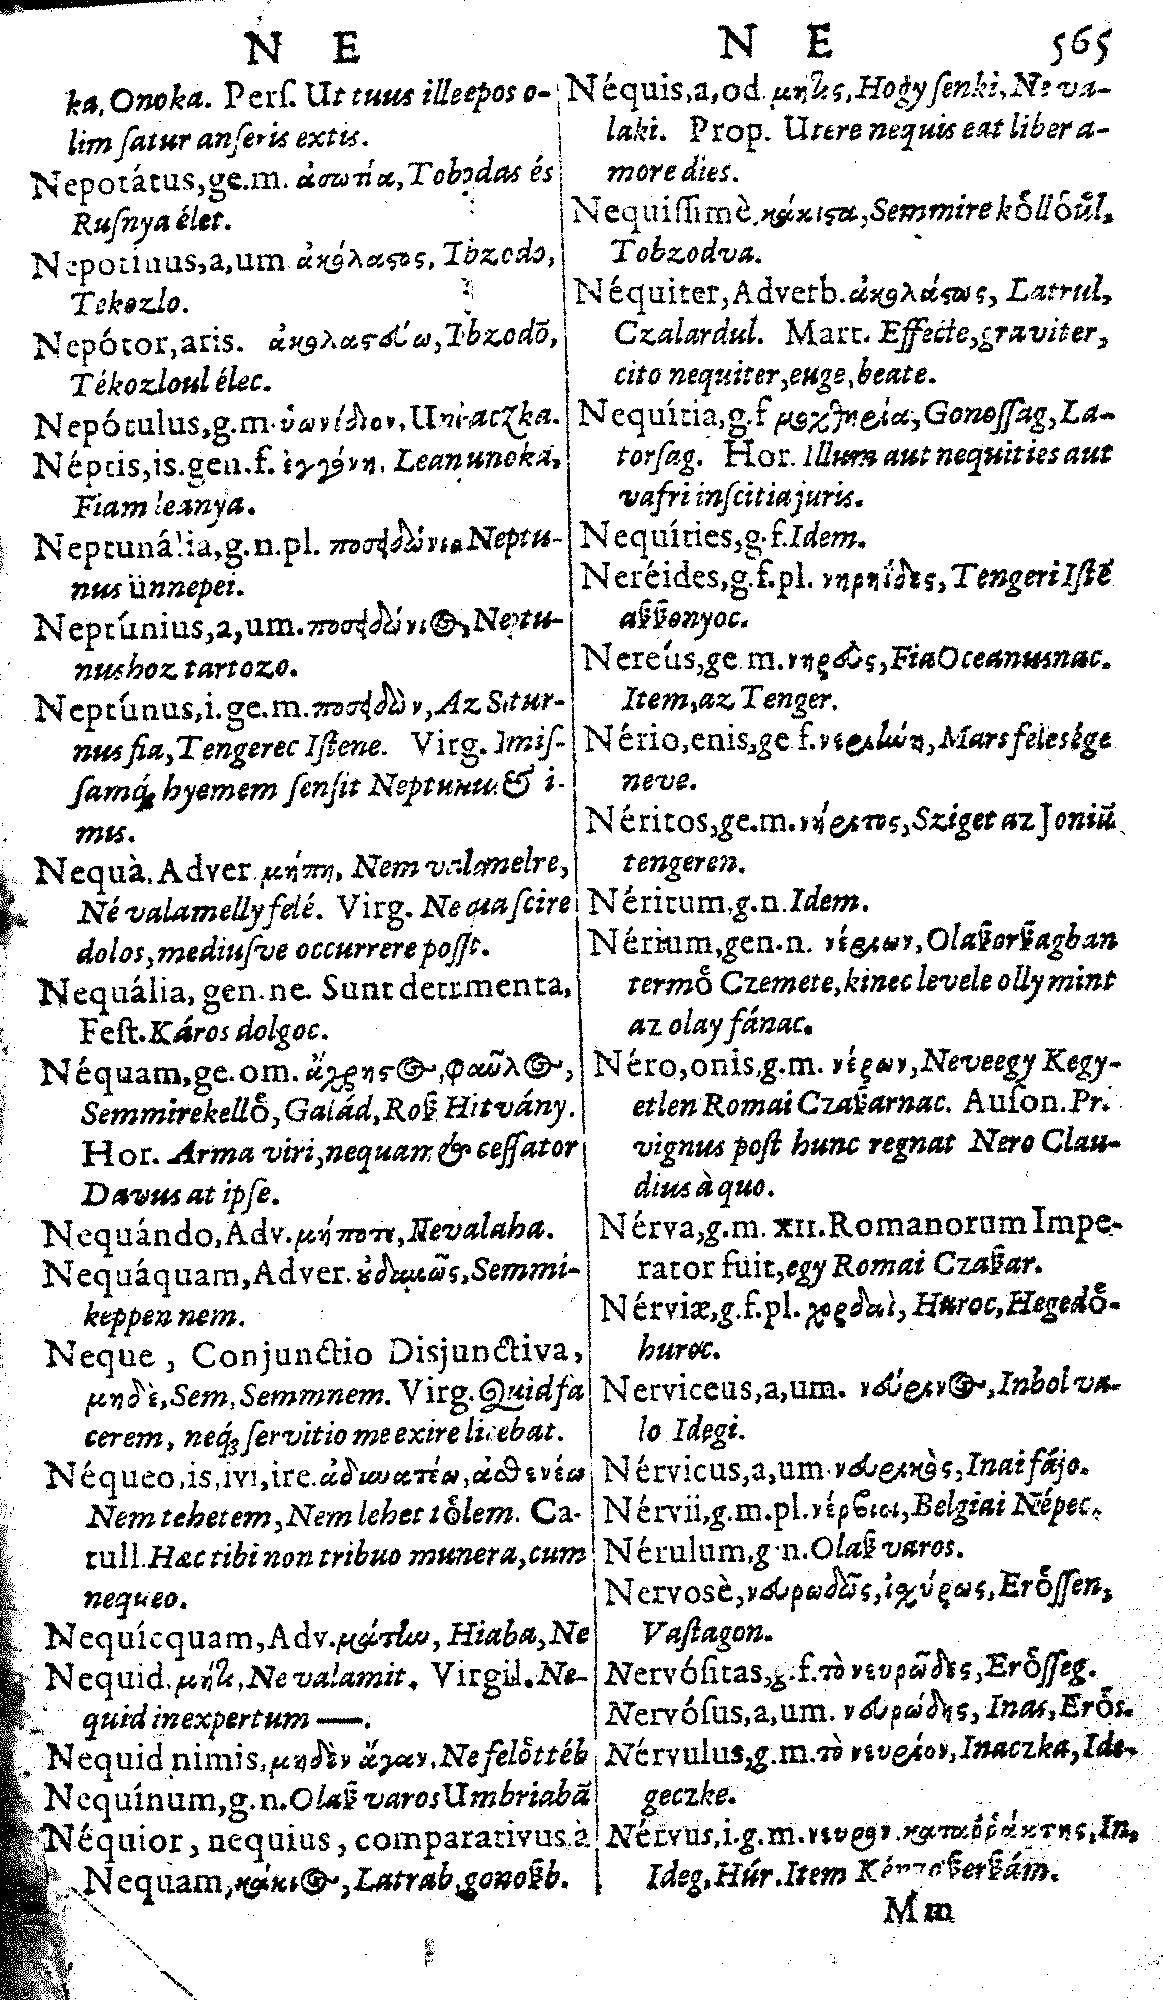 N E
N E 565
ka, Onoka. Perſ. Ut tuus ille epos o-
lim ſatur anſeris extis.
Nepotátus, ge.m. ἀσωτία, Tobzdas és
Ruſnya élet.
Nepotinus, a, um ἀκόλαϛος, Tobzodo,
Tekozlo.
Nepótor, aris. ἀκολαϛαίω, Tobzodõ,
Tékozloul élec.
Nepótulus, g.m. ὑωνίδιον, Unocaczka.
Néptis, is. gen. f. ἐγγόνη, Lean unoka,
Fiam leanya.
Neptunália, g.n.pl. ποσειδώνια Neptu-
nus ünnepei.
Neptúnius, a, um. ποσειδώνι⊕, Neptu-
nushoz tartozo.
Neptúnus, i. ge.m. ποσειδῶν, Az Satur-
nus fia, Tengerec Iſtene. Virg. Imiſ-
ſamq́; hyemem ſenſit Neptunu & i-
mis.
Nequà, Adver. μήπη, Nem valamelre,
Né valamelly felé. Virg. Ne qua ſcire
dolos, mediuſve occurrere poſſit.
Nequália, gen. ne. Sunt detrimenta,
Feſt. Káros dolgoc.
Néquam, ge. om. ἄχρηϛος, φαῦλος,
Semmirekellő, Galád, Roſz Hitvány.
Hor. Arma viri, nequam & ceſſator
Davus at ipſe.
Nequándo, Adv. μήποτε, Nevalaha.
Nequáquam, Adver. οὐδαμῶς, Semmi-
keppen nem.
Neque, Conjunctio Disjunctiva,
μηδὲ, Sem, Semmnem. Virg. Quid fa
cerem, neq́; ſervitio me exire licebat.
Néqueo, is, ivi, ire. ἀδυνατέω, ἀσθενέω
Nem tehetem, Nem lehet tőlem. Ca-
tull. Hæc tibi non tribuo munera, cum
nequeo.
Nequícquam, Adv. μάτην, Hiaba, Ne
Nequid. μήτι, Ne valamit. Virgil. Ne-
quid inexpertum —.
Nequid nimis, μηδὲν ἄγαν, Ne felőttéb
Nequínum, g.n. Olaſz varos Umbriabã
Néquior, nequius, comparativus à
Nequam, κάκιος, Latrab, gonoſzb.
Néquis, a, od. μήτις, Hogy ſenki, Ne va-
laki. Prop. Utere nequis eat liber a-
more dies.
Nequiſſimè, κάκιϛα, Semmire kőllőűl,
Tobzodva.
Néquiter, Adverb. ἀκολάϛως, Latrul,
Czalardul. Mart. Effecte, graviter,
cito nequiter, euge, beate.
Nequítia, g.f μοχθηρία, Gonoſſag, La-
torſag. Hor. Illum aut nequities aut
vafri inſcitia juris.
Nequíties, g.f. Idem.
Neréides, g.f.pl. νηρηΐδες, Tengeri Iſtẽ
aſzſzonyoc.
Nereús, ge m. νηρεὺς, Fia Oceanusnac.
Item, az Tenger.
Nério, enis, ge f. νεριώνη, Mars feleſége
neve.
Néritos, ge.m. νήριτος, Sziget az Joniũ
tengeren.
Néritum, g.n. Idem.
Nérium, gen. n. νέριον, Olaſzorſzagban
termő Czemete, kinec levele olly mint
az olay fánac.
Néro, onis, g.m. νέρων, Neve egy Kegy-
etlen Romai Czaſzarnac. Auſon. Pr.
vignus poſt hunc regnat Nero Clau-
dius à quo.
Nérva, g.m. XII. Romanorum Impe-
rator fuit, egy Romai Czaſzar.
Nérviæ, g.f.pl. χορδαὶ, Huroc, Hegedő-
huroc.
Nerviceus, a, um. νεύρινος, Inbol va-
lo Idegi.
Nérvicus, a, um. νευρικὸς, Inai fájo.
Nérvii, g.m.pl. νέρβιοι, Belgiai Népec.
Nérulum, g.n. Olaſz varos.
Nervosè, νευρωδῶς, ἰσχύρως, Erőſſen,
Vaſtagon.
Nervóſitas, g.f. τὸ νευρῶδες, Erőſſeg.
Nervóſus, a, um. νευρώδης, Inas, Erős.
Nérvulus, g.m. τὸ νευρίον, Inaczka, Ide-
geczke.
Nérvus, i. g.m. νευρον, καταῤῥάκτης, In,
Ideg, Húr. Item
Mm